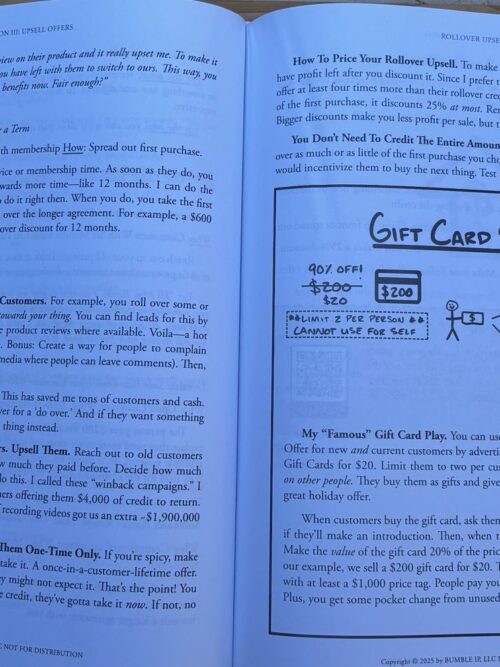 ON III: UPSELL OFFERS
view on their product and it really upset me. To make it
you have left with them to switch to ours. This way, you
benefits now. Fair enough?"
r a Term
th membership How: Spread out first purchase.
vice or membership time. As soon as they do, you
wards more time—like 12 months. I can do the
o do it right then. When you do, you take the first
over the longer agreement. For example, a $600
over discount for 12 months.
Customers. For example, you roll over some or
towards your thing. You can find leads for this by
e product reviews where available. Voila—a hot
. Bonus: Create a way for people to complain
media where people can leave comments). Then,
This has saved me tons of customers and cash.
ver for a 'do over.' And if they want something
thing instead.
rs. Upsell Them. Reach out to old customers
w much they paid before. Decide how much
do this. I called these "winback campaigns." I
ners offering them $4,000 of credit to return.
recording videos got us an extra ~$1,900,000
Them One-Time Only. If you're spicy, make
take it. A once-in-a-customer-lifetime offer.
y might not expect it. That's the point! You
e credit, they've gotta take it now. If not, no
NOT FOR DISTRIBUTION
ROLLOVER UPSE
How To Price Your Rollover Upsell. To make
have profit left after you discount it. Since I prefer t
offer at least four times more than their rollover cre
of the first purchase, it discounts 25% at most. Re
Bigger discounts make you less profit per sale, but t
You Don't Need To Credit The Entire Amoun
over as much or as little of the first purchase you cho
would incentivize them to buy the next thing. Test
GIFT CARD
90% OFF!
$200
$20
$200
**LIMIT 2 PER PERSON **
CANNOT USE FOR SELF
$
My "Famous" Gift Card Play. You can use
Offer for new and current customers by adverti
Gift Cards for $20. Limit them to two per cus
on other people. They buy them as gifts and give
great holiday offer.
When customers buy the gift card, ask them
if they'll make an introduction. Then, when t
Make the value of the gift card 20% of the pric
our example, we sell a $200 gift card for $20. T
with at least a $1,000 price tag. People pay you
Plus, you get some pocket change from unused
Copyright © 2025 by BUMBLE IP, LLC